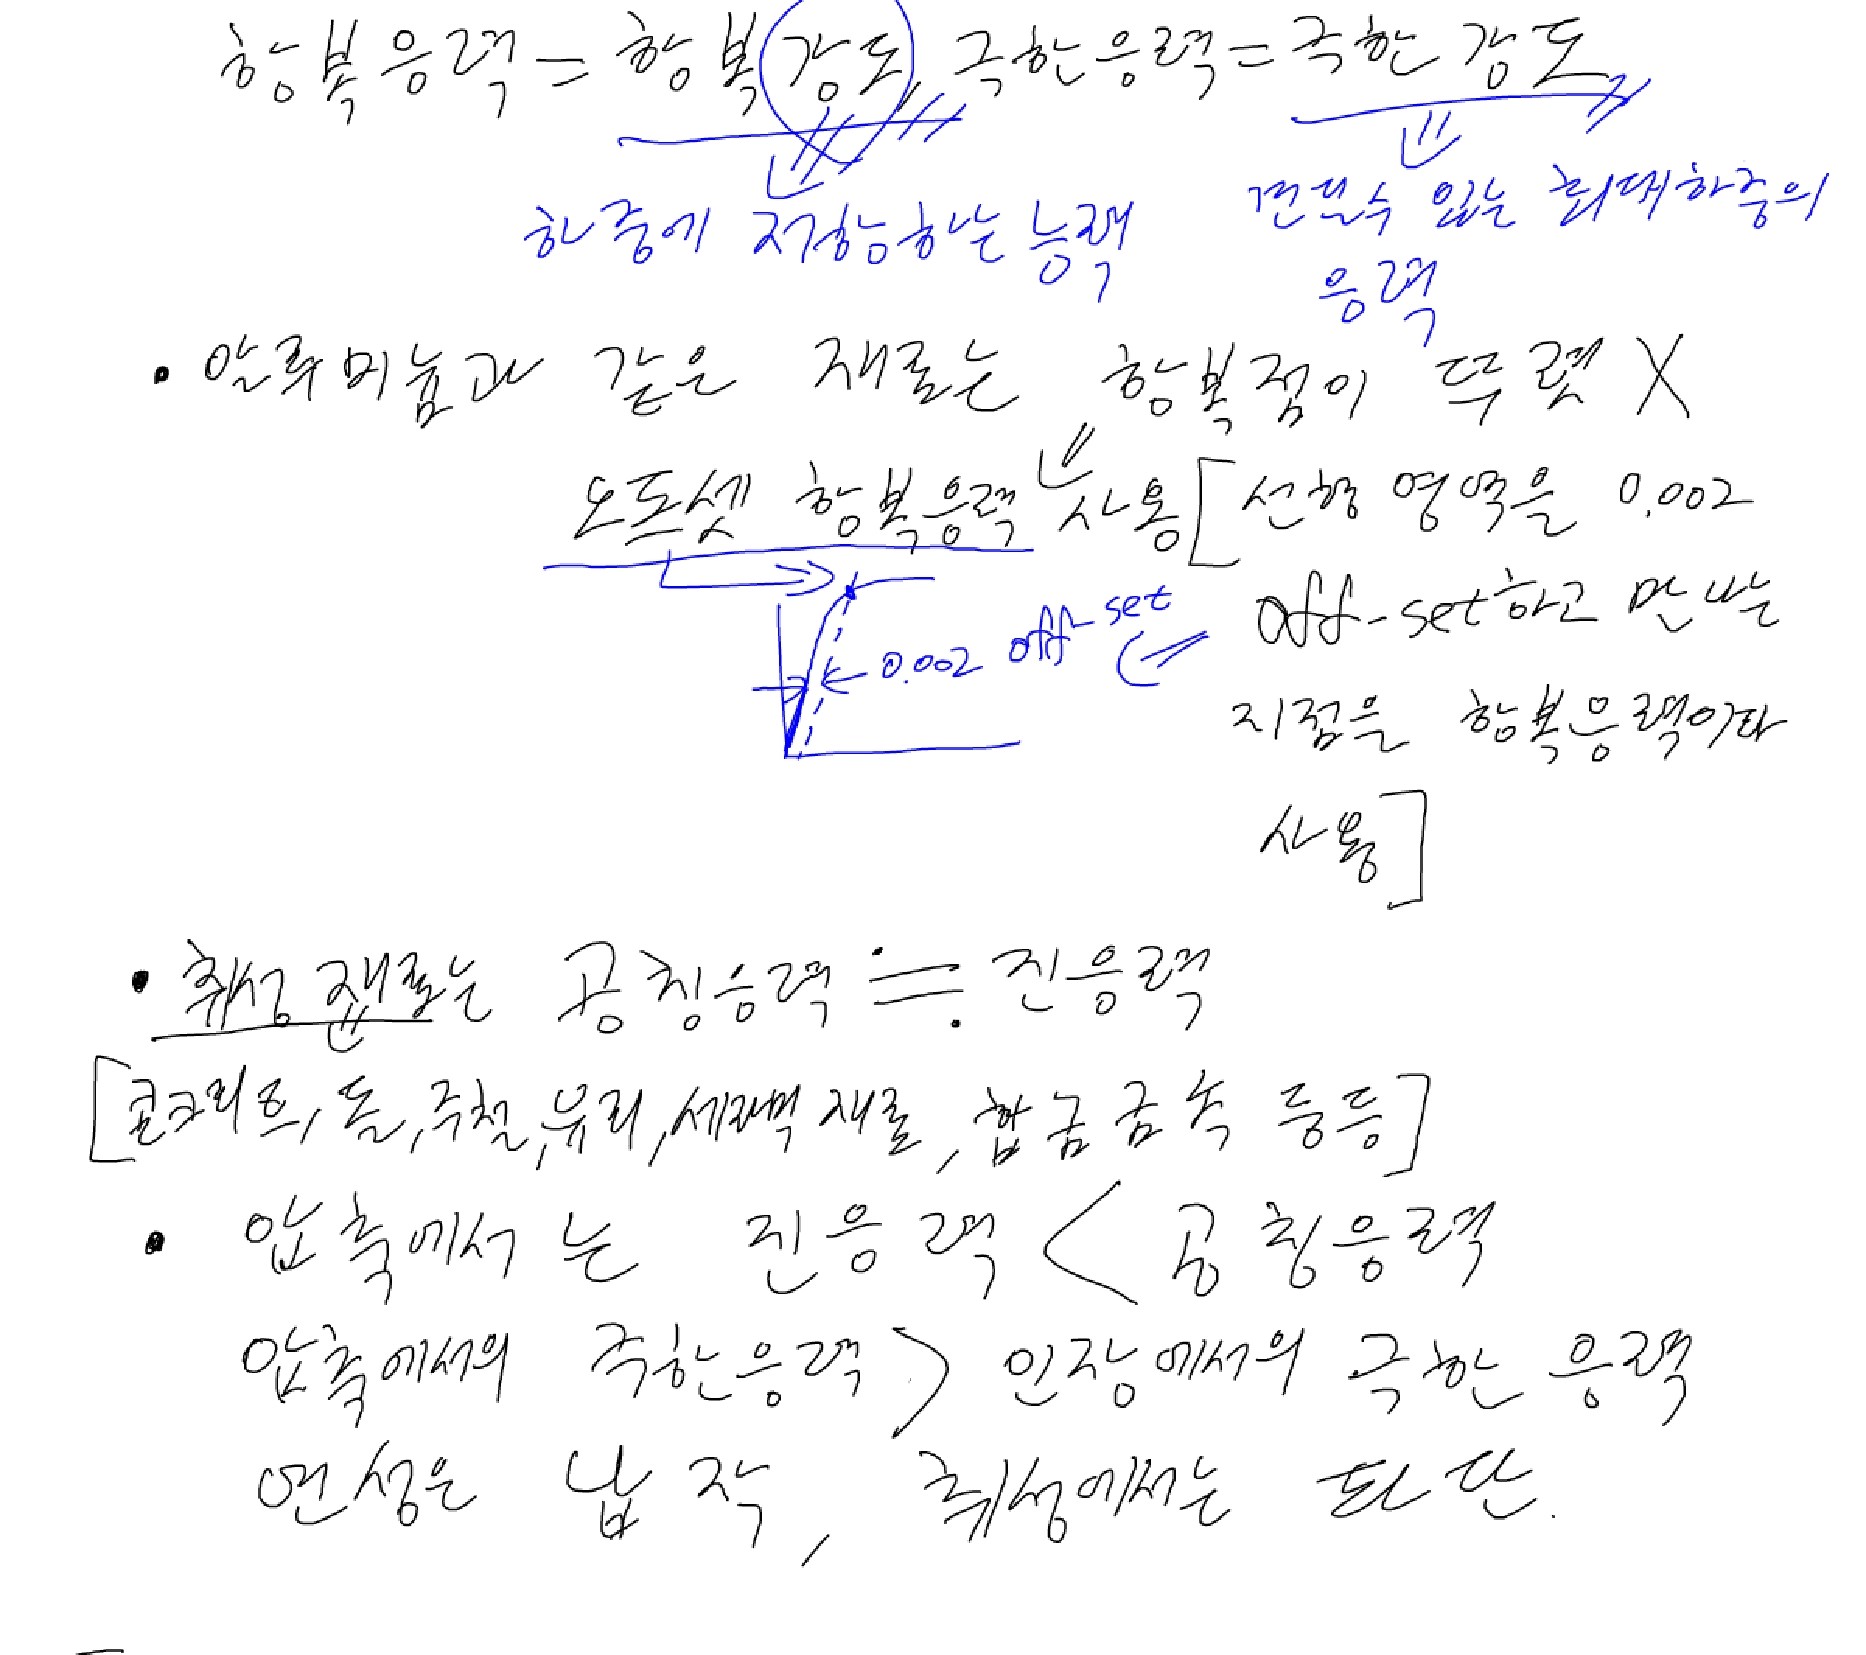 항복응력 = 항복강도, 극한응력 = 극한 강도
하중에 저항하는 능력
견딜수 있는 최대하중의
응력
• 알루미늄과 같은 재료는 항복점이 뚜렷 X
오프셋 항복응력 사용 [선형 영역을 0.002
off-set하고 만나는
0.002 off-set
지점을 항복응력이라
사용]
• 취성 재료는 공칭응력 ≒ 진응력
[콘크리트, 돌, 주철, 유리, 세라믹 재료, 합금금속 등등]
• 압축에서는 진응력 < 공칭응력
압축에서의 극한응력 > 인장에서의 극한 응력
연성은 납작, 취성에서는 파단.